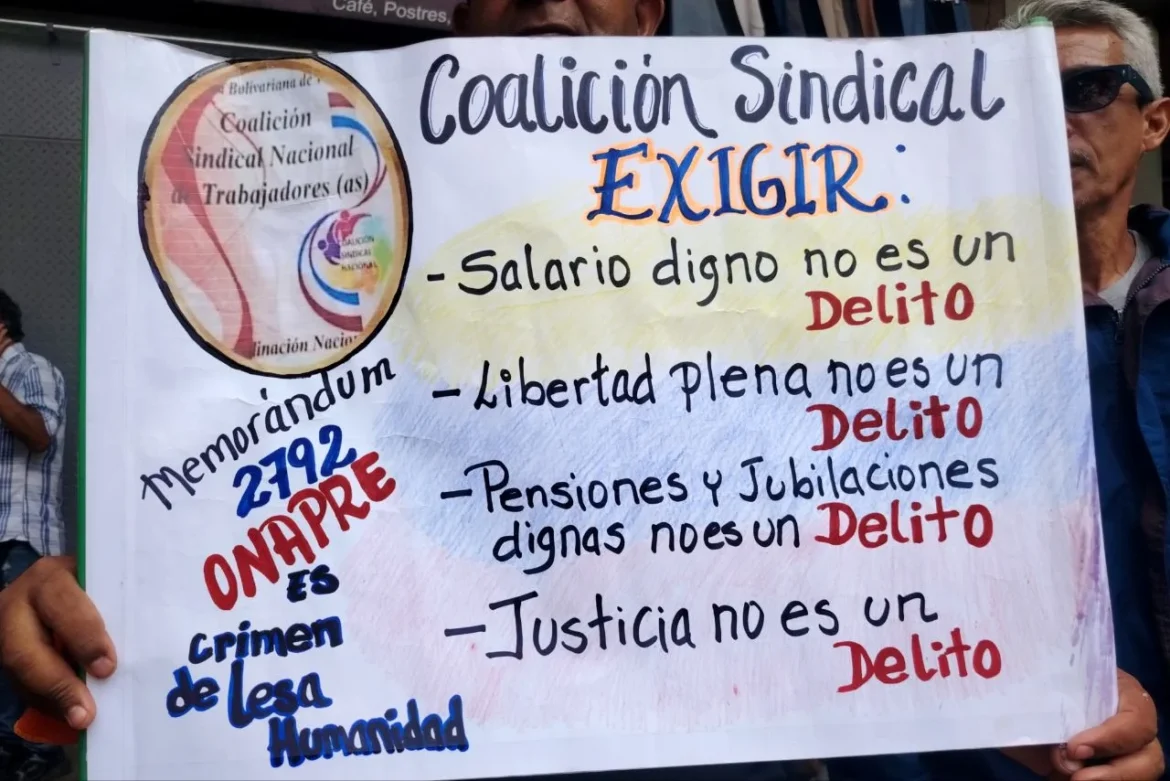 Café, Postres,
Bolivariana de
Coalición
Sindical Nacional
de Trabajadores (as)
COALICIÓN
SINDICAL
NACIONAL
dinación Nacio
Memorándum
2792
ONAPRE
ES
crímen
de Lesa
Humanidad
Coalición Sindical
EXIGIR:
- Salario digno no es un
Delito
- Libertad plena no es un
Delito
- Pensiones y Jubilaciones
dignas no es un Delito
- Justicia no es un
Delito